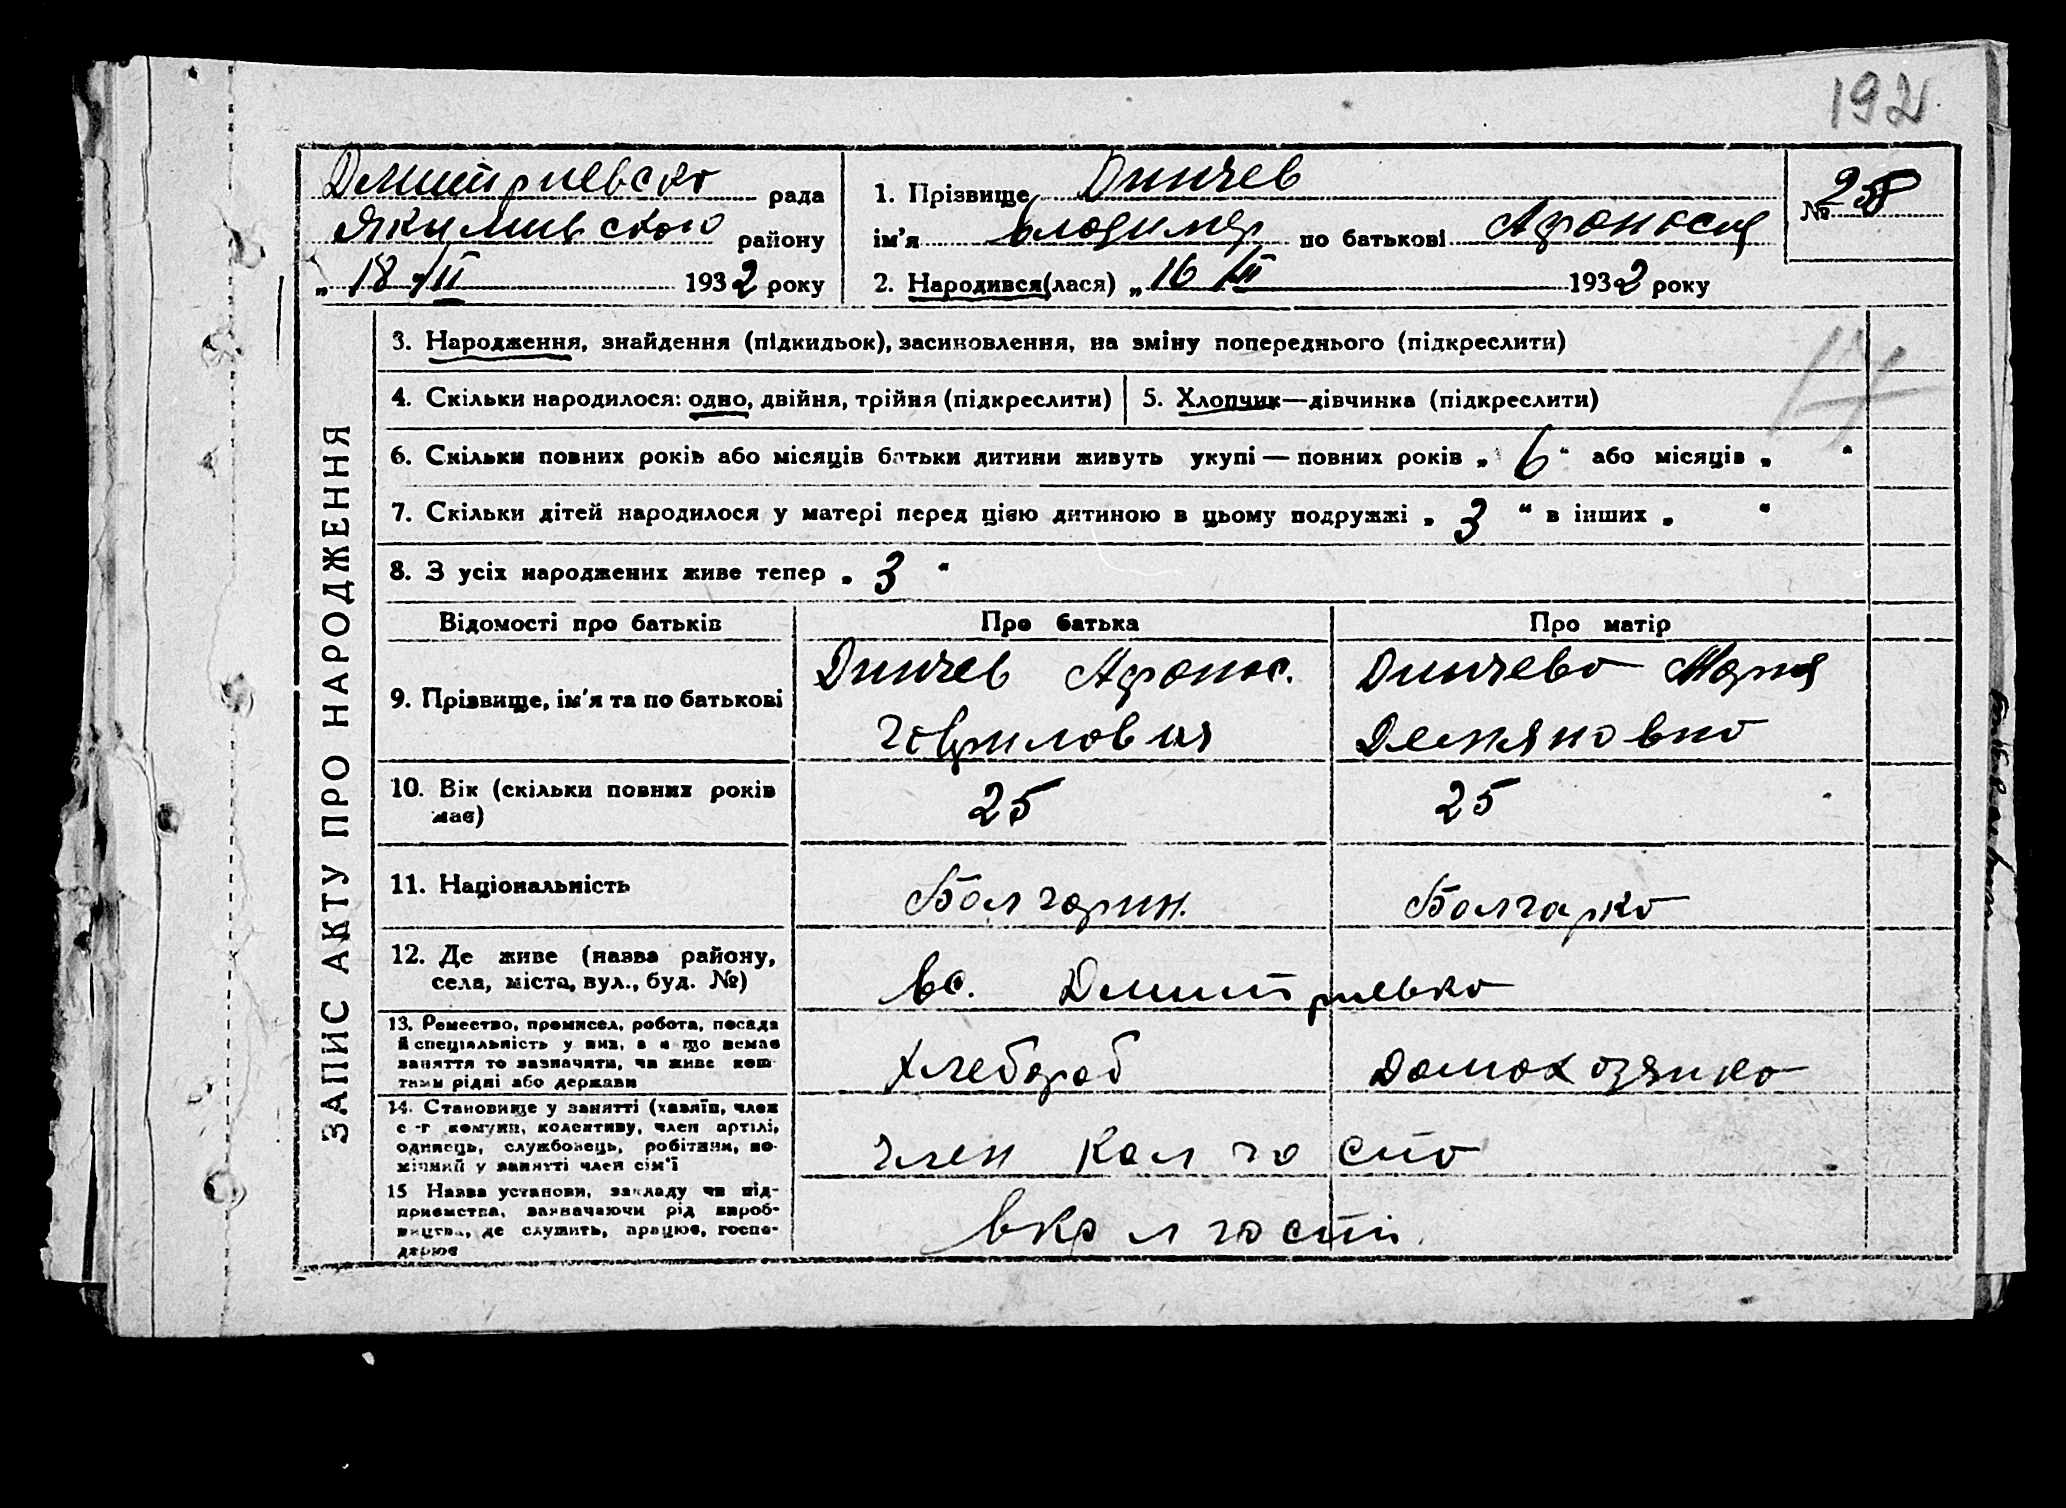 192
Дмитриевско рада
Якимивского району
„ 18 " II 1932 року
1. Прізвище Динчев
ім'я Владимер по батькові Афонасия
№ 258
2. Народився(лася) „ 16 III 1932 року
ЗАПИС АКТУ ПРО НАРОДЖЕННЯ
3. Народження, знайдення (підкидьок), засиновлення, на зміну попереднього (підкреслити)
4. Скільки народилося: одно, двійня, трійня (підкреслити) 5. Хлопчик—дівчинка (підкреслити)
6. Скільки повних років або місяців батьки дитини живуть укупі — повних років „ 6 “ або місяців „ “
7. Скільки дітей народилося у матері перед цією дитиною в цьому подружжі „ 3 “ в інших „ “
8. З усіх народжених живе тепер „ 3 “
Відомості про батьків Про батька Про матір
9. Прізвище, ім'я та по батькові
Динчев Афонас.
Говрилович
Динчево Мария
Демяновно
10. Вік (скільки повних років має)
25 25
11. Національність
Болгорин. Болгарко
12. Де живе (назва району,
села, міста, вул., буд. №)
вс. Дмитриевко
13. Ремество, промисел, робота, посада
й спеціяльність у них, а якщо немає
заняття то зазначити, чи живе кош-
тами рідні або держави
хлебороб домохозяико
14. Становище у занятті (хазяїн, член
с.-г комуни, колективу, член артілі,
одинець, службовець, робітник, по-
мічний у занятті член сім'ї
член колгоспо
15 Назва установи, закладу чи під-
приємства, зазначаючи рід вироб-
ництва, де служить, працює, госпо-
дарює
вколгоспі.